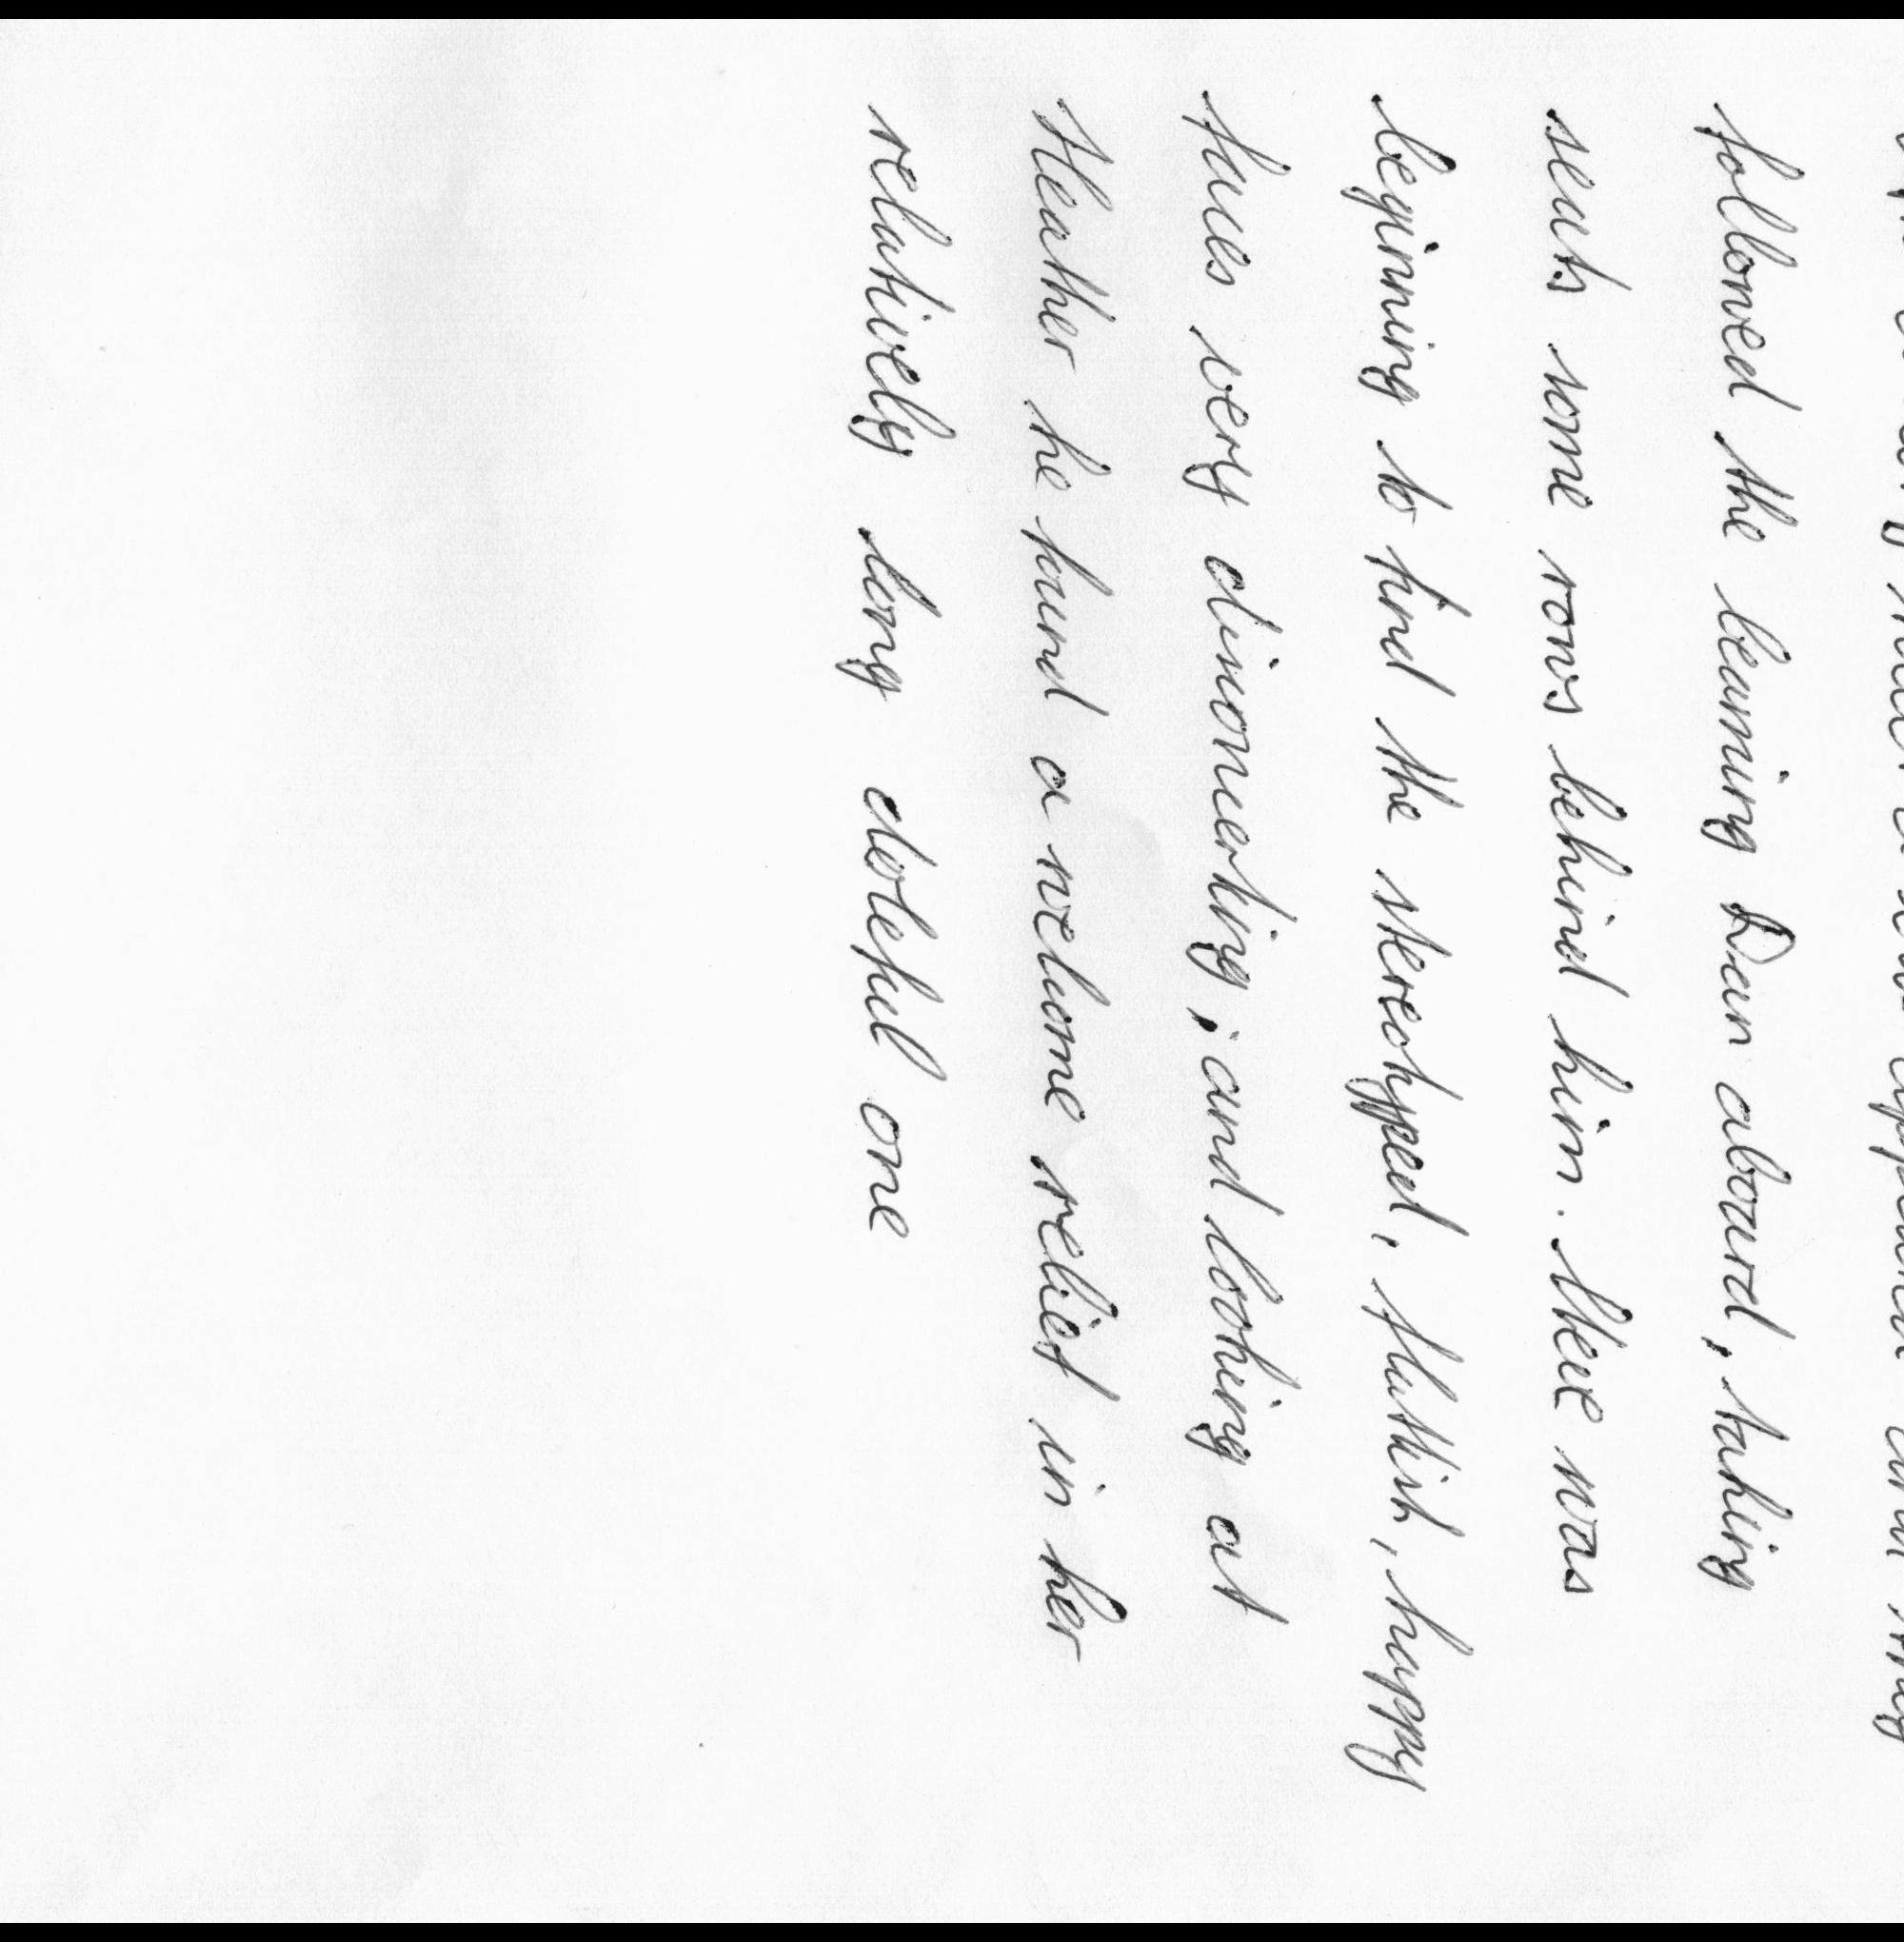 followed the beaming Dan aboard, taking
seats some rows behind him. Steve was
beginning to find the stereotyped, flattish, happy
faces very disconcerting, and looking at
Heather he found a welcome relief in her
relatively long doleful one